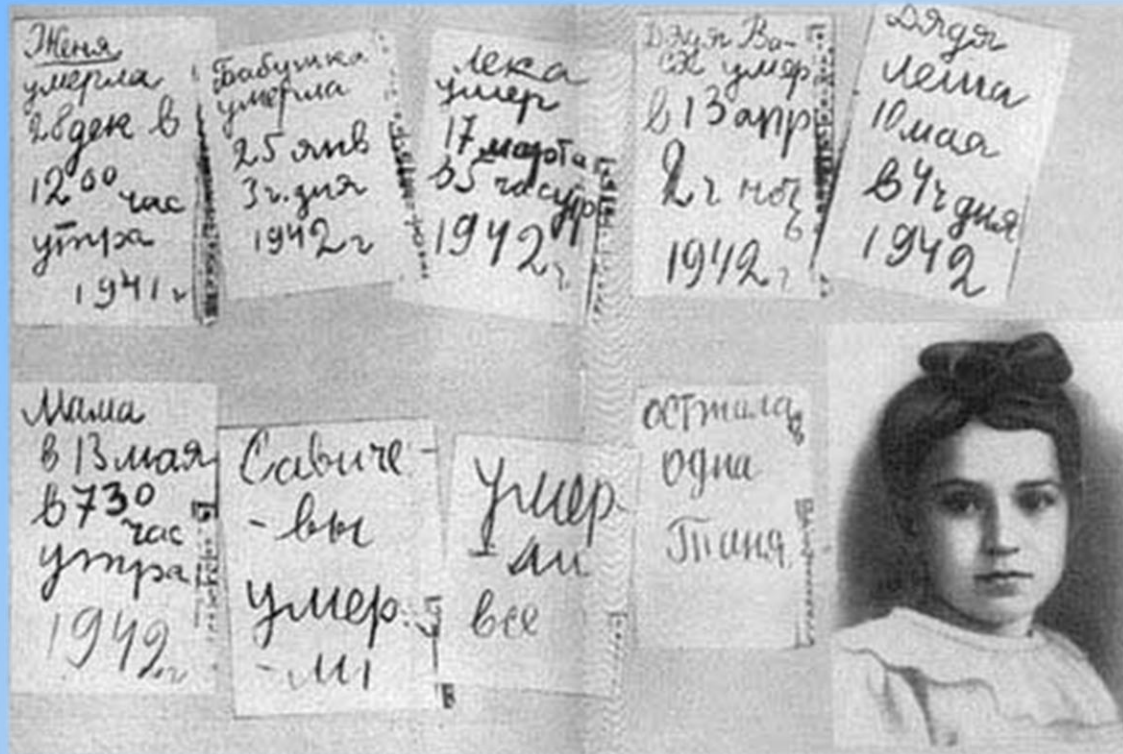 Женя
умерла
28 дек в
12 00 час
утра
1941 г
Бабушка
умерла
25 янв
3 ч. дня
1942 г
Лека
умер
17 марта
в 5 час утр
1942 г
Дядя Ва-
ся умер
в 13 апр
2 ч ноч
ь
1942 г
Дядя
Леша
10 мая
в 4 ч дня
1942
Мама
в 13 мая
в 7 30
час
утра
1942 г
Савиче-
-вы
умер.
-ли
Умер
-ли
все
осталась
одна
Таня